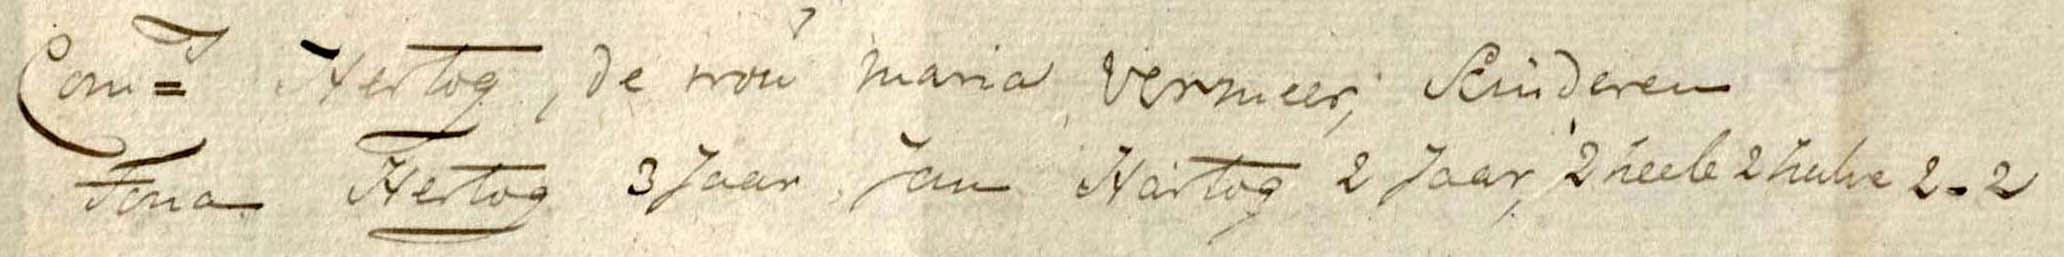 Corn=s Hertog, de vrou maria Vermeer, Kinderen
Fona Hertog 3 Jaar Jan Hartog 2 Jaar, 2 heele 2 halve 2-2